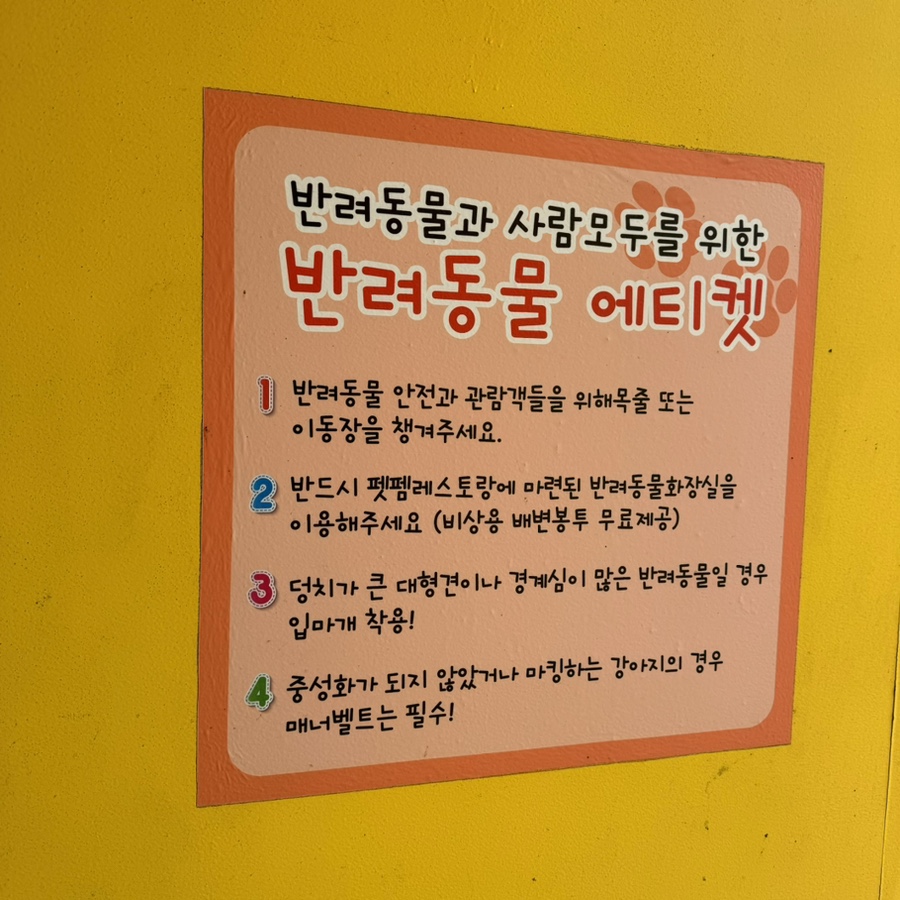 반려동물과 사람모두를 위한
반려동물 에티켓
1 반려동물 안전과 관람객들을 위해목줄 또는
이동장을 챙겨주세요.
2 반드시 펫펨레스토랑에 마련된 반려동물화장실을
이용해주세요 (비상용 배변봉투 무료제공)
3 덩치가 큰 대형견이나 경계심이 많은 반려동물일 경우
입마개 착용!
4 중성화가 되지 않았거나 마킹하는 강아지의 경우
매너벨트는 필수!